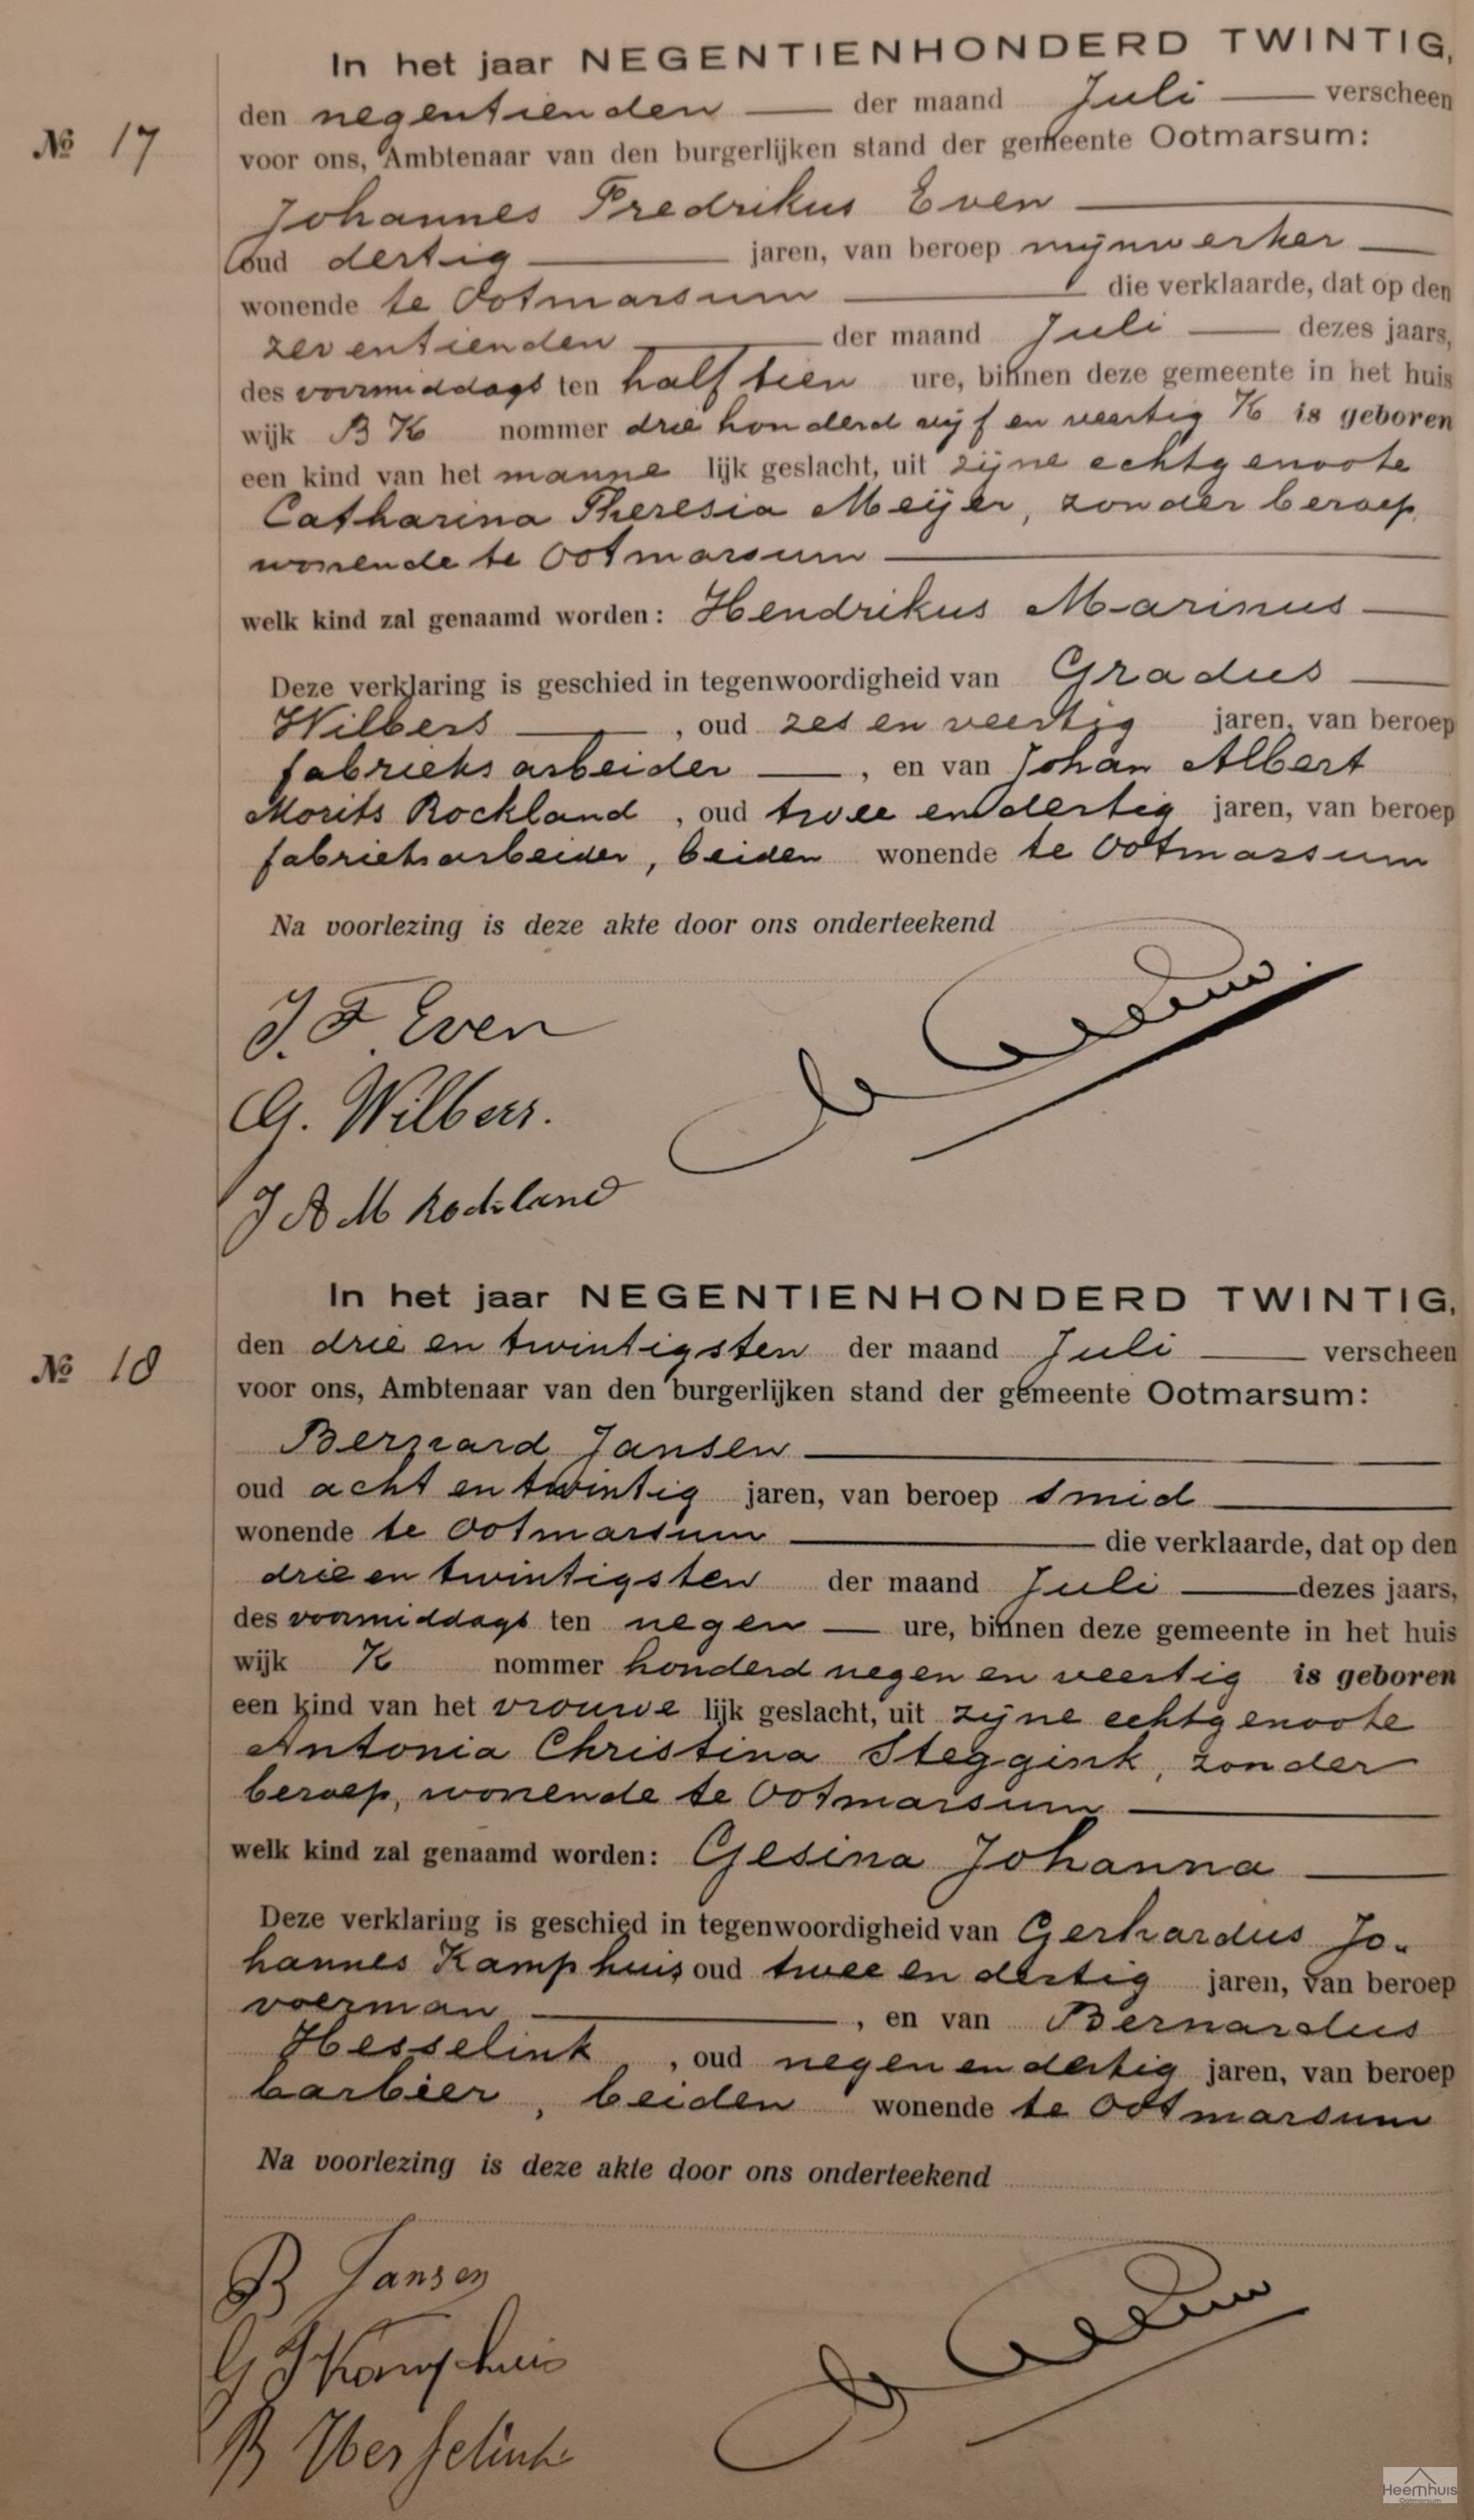 In het jaar NEGENTIENHONDERD TWINTIG,
den negentienden der maand Juli verscheen
No 17
voor ons, Ambtenaar van den burgerlijken stand der gemeente Ootmarsum:
Johannes Fredrikus Even
oud dertig jaren, van beroep mijnwerker
wonende te Ootmarsum die verklaarde, dat op den
zeventienden der maand Juli dezes jaars,
des voormiddags ten half tien ure, binnen deze gemeente in het huis
wijk B K nommer drie honderd vijf en veertig K is geboren
een kind van het manne lijk geslacht, uit zijne echtgenoote
Catharina Theresia Meijer, zonder beroep
wonende te Ootmarsum
welk kind zal genaamd worden: Hendrikus Marinus
Deze verklaring is geschied in tegenwoordigheid van Gradus
Wilbers, oud zes en veertig jaren, van beroep
fabrieksarbeider, en van Johan Albert
Morits Rockland, oud twee en dertig jaren, van beroep
fabrieksarbeider, beiden wonende te Ootmarsum
Na voorlezing is deze akte door ons onderteekend
J. F. Even
G. Wilbers.
J A M Rockland
In het jaar NEGENTIENHONDERD TWINTIG,
den drie en twintigsten der maand Juli verscheen
No 18
voor ons, Ambtenaar van den burgerlijken stand der gemeente Ootmarsum:
Bernard Jansen
oud acht en twintig jaren, van beroep smid
wonende te Ootmarsum die verklaarde, dat op den
drie en twintigsten der maand Juli dezes jaars,
des voormiddags ten negen ure, binnen deze gemeente in het huis
wijk K nommer honderd negen en veertig is geboren
een kind van het vrouwe lijk geslacht, uit zijne echtgenoote
Antonia Christina Steggink, zonder
beroep, wonende te Ootmarsum
welk kind zal genaamd worden: Gesina Johanna
Deze verklaring is geschied in tegenwoordigheid van Gerhardus Jo-
hannes Kamphuis oud twee en dertig jaren, van beroep
voerman, en van Bernardus
Hesselink, oud negen en dertig jaren, van beroep
barbier, beiden wonende te Ootmarsum
Na voorlezing is deze akte door ons onderteekend
B Jansen
G J Kamphuis
B Hesselink
Heemhuis
Ootmarsum